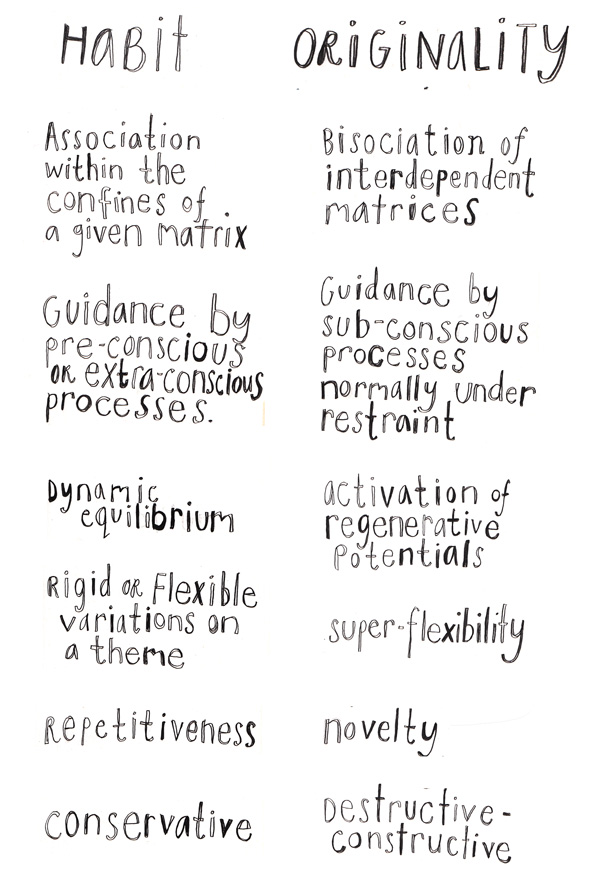 HaBit
ORiGiNaLiTY
Association
within the
confines of
a given matrix
Bisociation of
interdependent
matrices
Guidance by
pre-conscious
OR extra-conscious
processes.
Guidance by
sub-conscious
processes
normally under
restraint
Dynamic
equilibrium
activation of
regenerative
Potentials
Rigid OR Flexible
variations on
a theme
super-flexibility
Repetitiveness
novelty
conservative
Destructive-
constructive